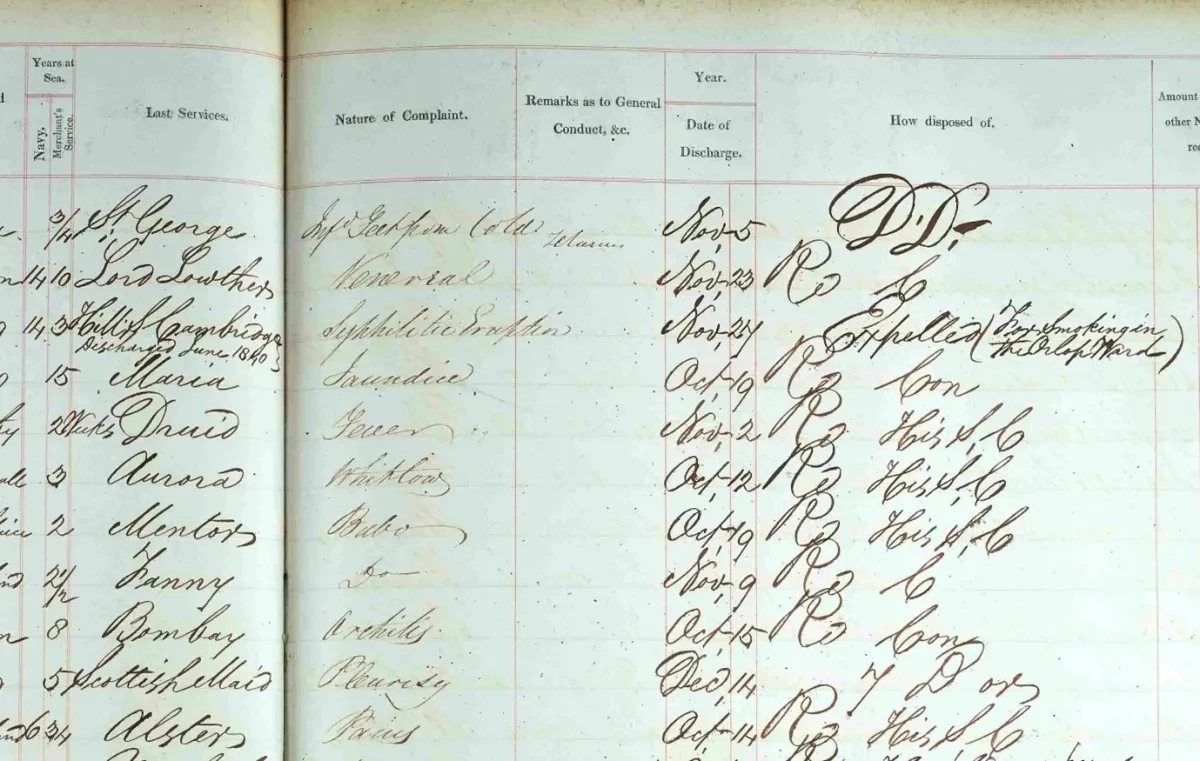 Years at Sea. Last Services. Nature of Complaint. Remarks as to General Conduct, &c. Year. Date of Discharge. How disposed of. Amount
Navy. Merchant's Service. other
3/4 St. George Infd Feet from Cold Tetanus Nov. 5 DD.
14 10 Lord Lowther Venereal Nov. 23 Rd C
14 3 Hills Cambridge Syphilitic Eruption Nov. 27 Expelled (For Smoking in
Discharged June 1840 the Orlop Ward)
15 Maria Jaundice Oct. 19 Rd Con
2 Weeks Druid Fever Nov. 2 Rd His S. C
3 Aurora Whitlow Oct. 12 Rd His S. C
2 Mentor Bubo Oct. 19 Rd His S. C
2 1/2 Fanny Do Nov. 9 Rd C
8 Bombay Orchitis Oct. 15 Rd Con
5 Scottish Maid Pleurisy Dec. 14 7 D
6 34 Alster Pains Oct. 14 Rd His S. C